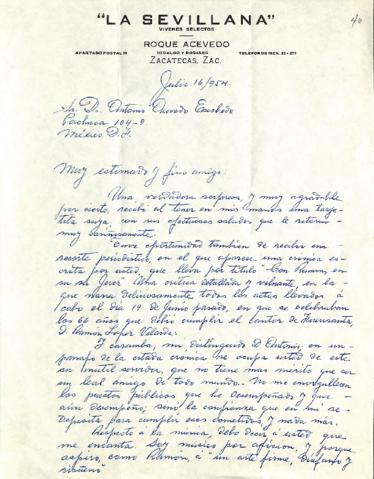 40
"LA SEVILLANA"
VIVERES SELECTOS
ROQUE ACEVEDO
APARTADO POSTAL 16 HIDALGO Y ROSALES TELEFONOS MEX. 32 - 271
ZACATECAS, ZAC.
Julio 16/954.
Sr. Dr. Antonio Acevedo Escobedo
Pachuca 104-9.
México D.F.
Muy estimado y fino amigo:
Una verdadera sorpresa, y muy agradable
por cierto, recibí al tener en mis manos una tarje-
tita suya con sus afectuosos saludos que le retorno
muy
Tuve oportunidad también de recibir un
recorte periodístico, en el que aparece una crónica es-
crita por usted, que lleva por título "Con Ramón, en
su Jerez". Una crítica detallada y vibrante, en la
que narra deliciosamente todos los actos llevados á
cabo el día 19 de Junio pasado, en que se celebraban
los 66 años que debió cumplir el cantor de
D. Ramón López Velarde.
Y caramba, mi distinguido D. Antonio, en un
de la citada crónica se ocupa usted de este
su inútil servidor, que no tiene mas mérito que ser
un leal amigo de todo mundo. No me envanecen
los puestos públicos que he desempeñado y que
aún desempeño; sino la confianza que en mi se
deposita para cumplir esos cometidos, y nada mas.
Respecto á la música, debo decir á usted que
me encanta. Soy músico por afición, y porque
aspiro, como Ramón, á un arte firme, diáfano y